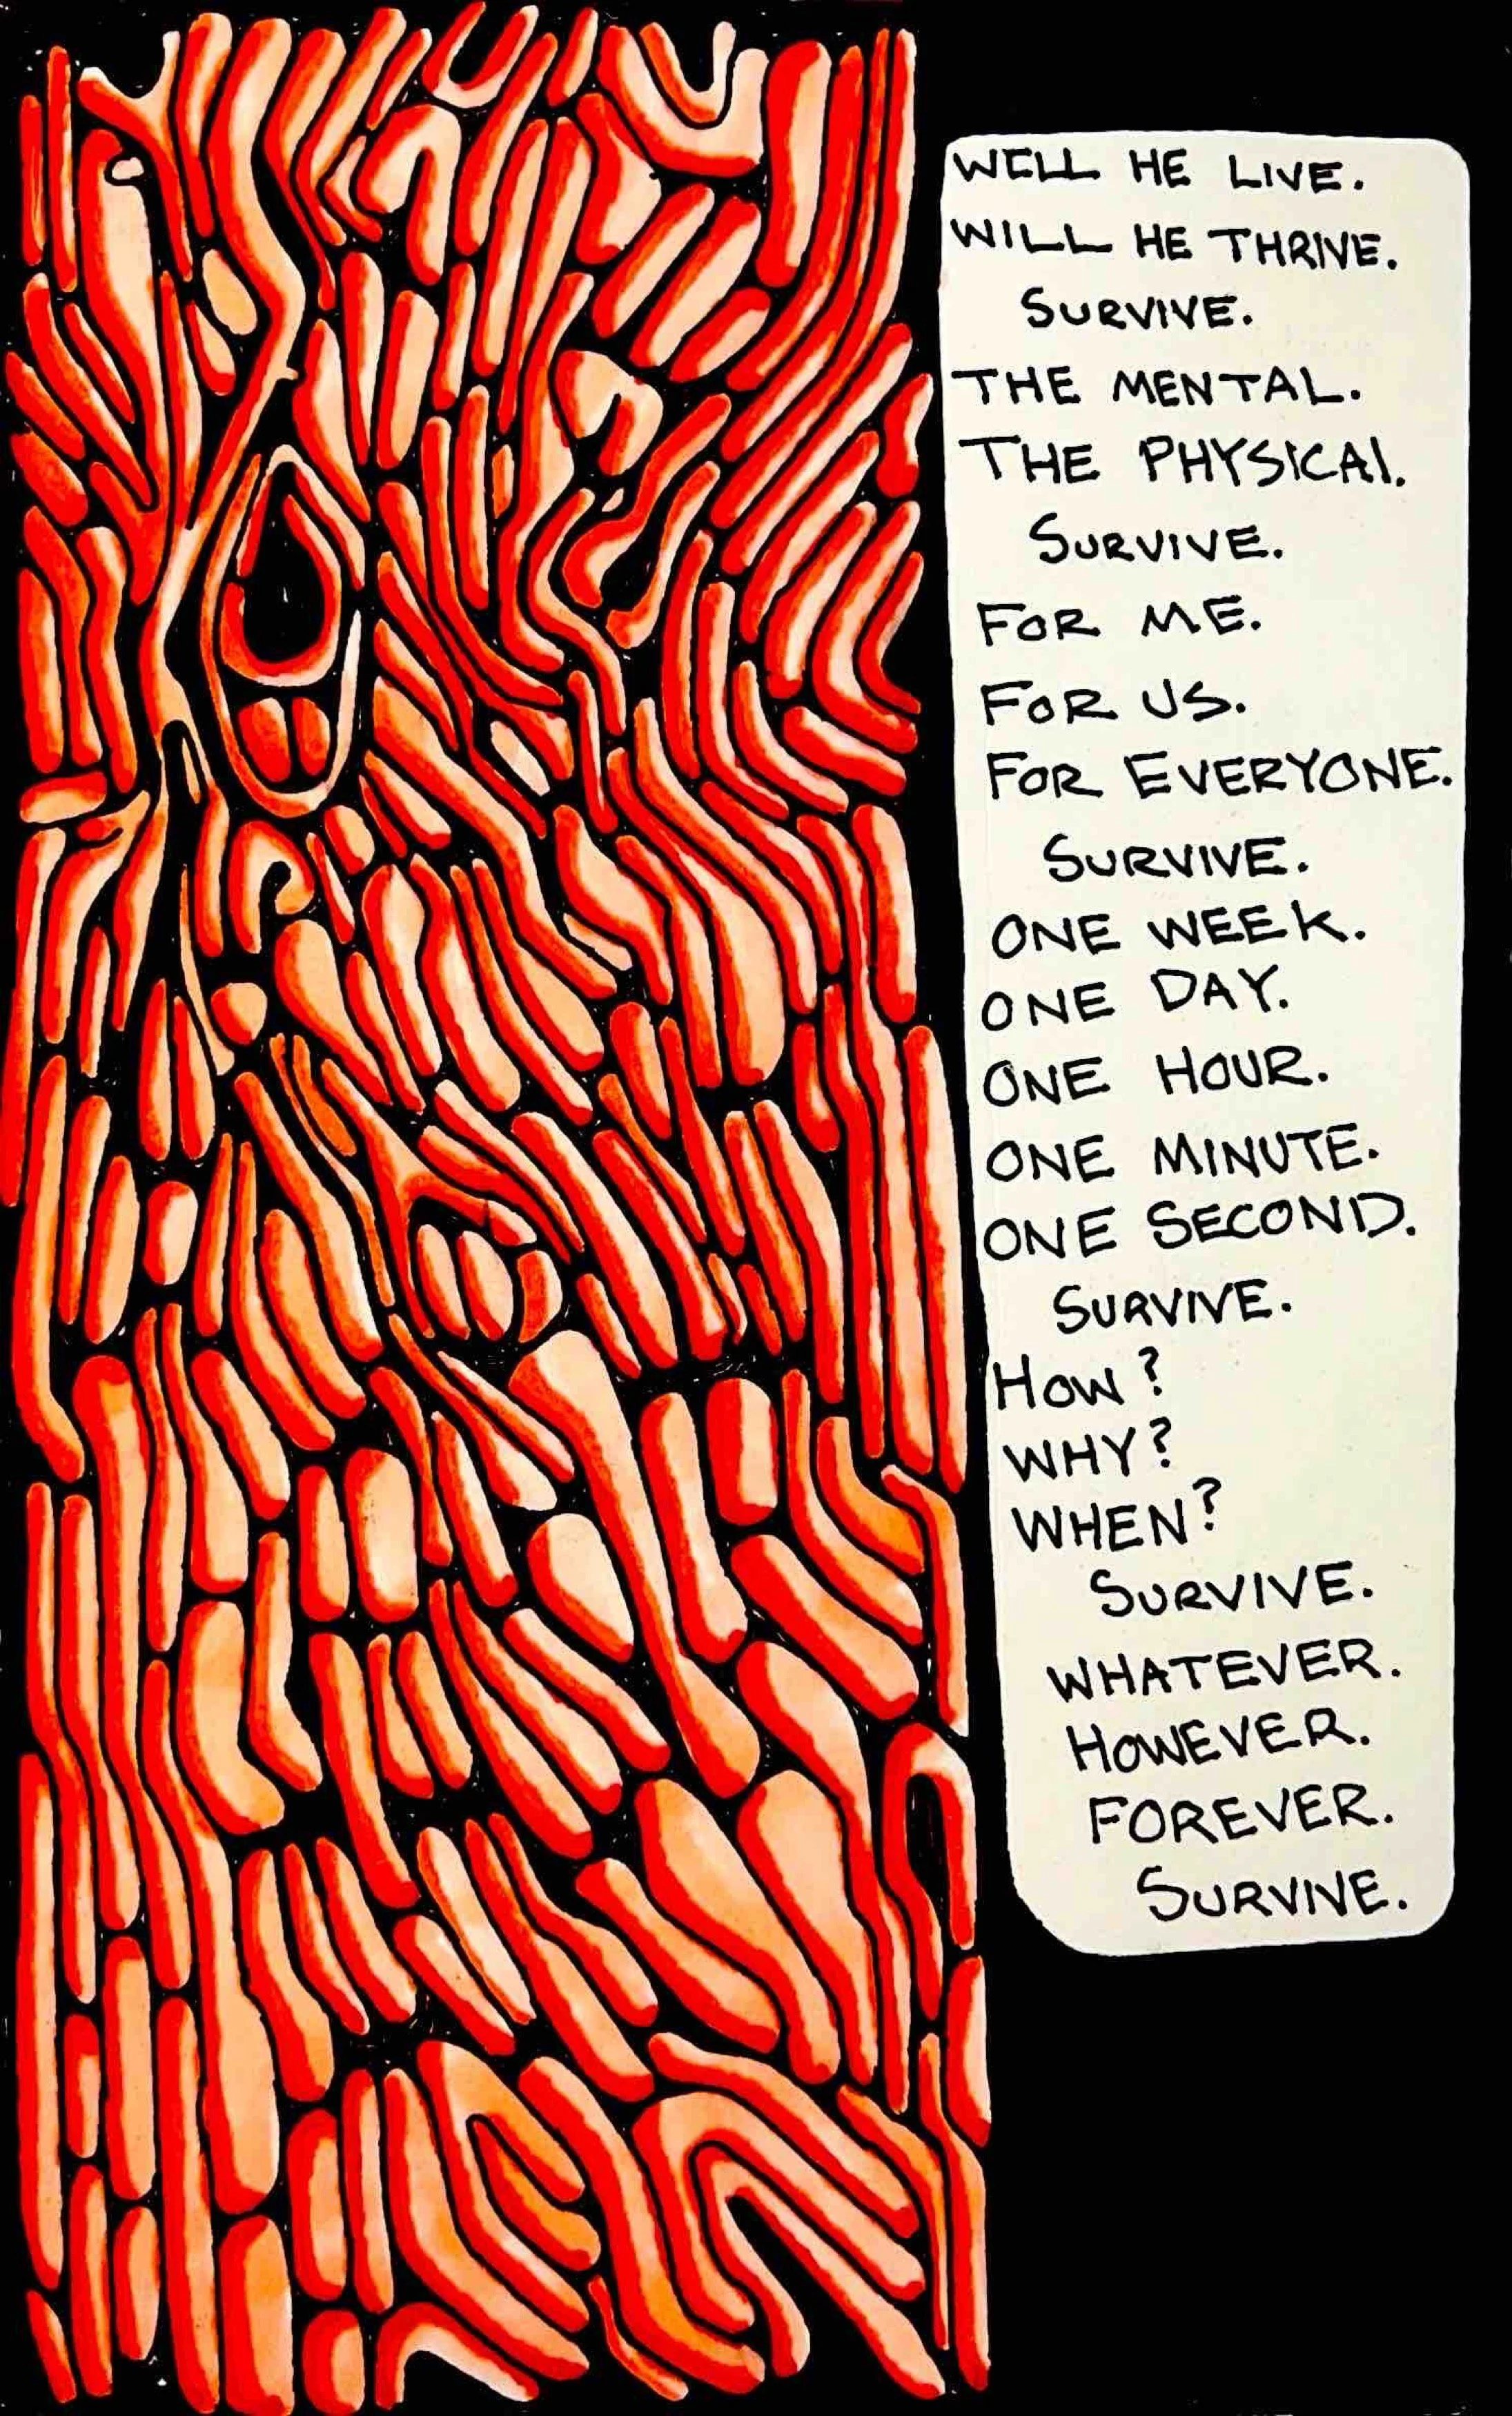 WELL HE LIVE.
WILL HE THRIVE.
SURVIVE.
THE MENTAL.
THE PHYSICAL.
SURVIVE.
FOR ME.
FOR US.
FOR EVERYONE.
SURVIVE.
ONE WEEK.
ONE DAY.
ONE HOUR.
ONE MINUTE.
ONE SECOND.
SURVIVE.
HOW?
WHY?
WHEN?
SURVIVE.
WHATEVER.
HOWEVER.
FOREVER.
SURVIVE.